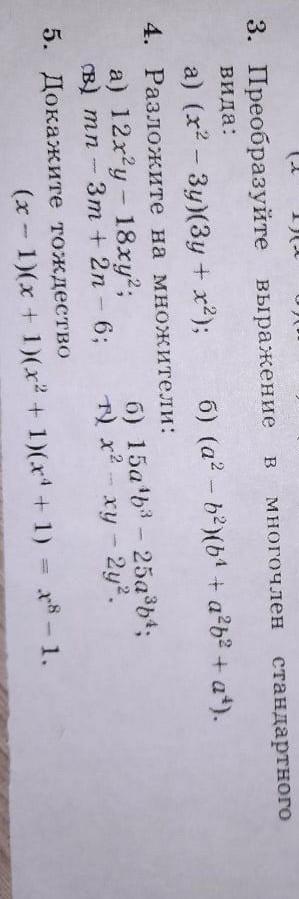 3. Преобразуйте выражение в многочлен стандартного
вида:
а) (x² − 3y)(3y + x²); б) (a² − b²)(b⁴ + a²b² + a⁴).
4. Разложите на множители:
а) 12x²y − 18xy²; б) 15a⁴b³ − 25a³b⁴;
в) mn − 3m + 2n − 6; г) x² − xy − 2y².
5. Докажите тождество
(x − 1)(x + 1)(x² + 1)(x⁴ + 1) = x⁸ − 1.